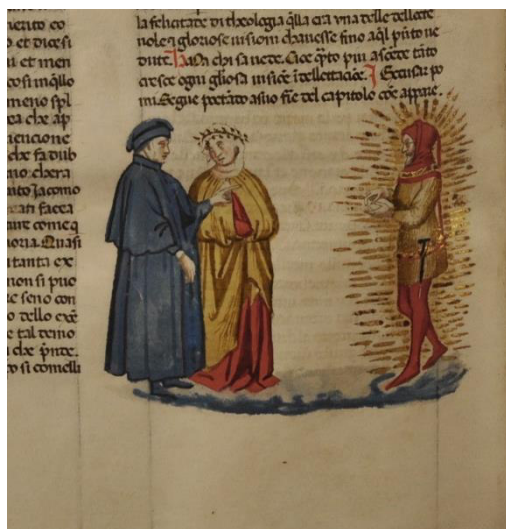 nerito co
o et dicesi
u et men
cosi inqllo
meno spl
ea che ap
nencione
che fa dub
mo: chera
nito Jacomo
ean facea
ante come q
oria. Quasi
tanta ex
non si puo
e seno con
o dello exc
e tal temo
che pnte.
o si comelli
la felicitade di theologia qlla era una delle dellecte
nole gloriose uisioni chauesse fino aql puto ue
dute. chi sa uede. Cioe qto piu ascede tato
cresce ogni gliosa uisioe itellectuale. Et scusar po
mi Segue poetado asuo fie del capitolo coe appare.